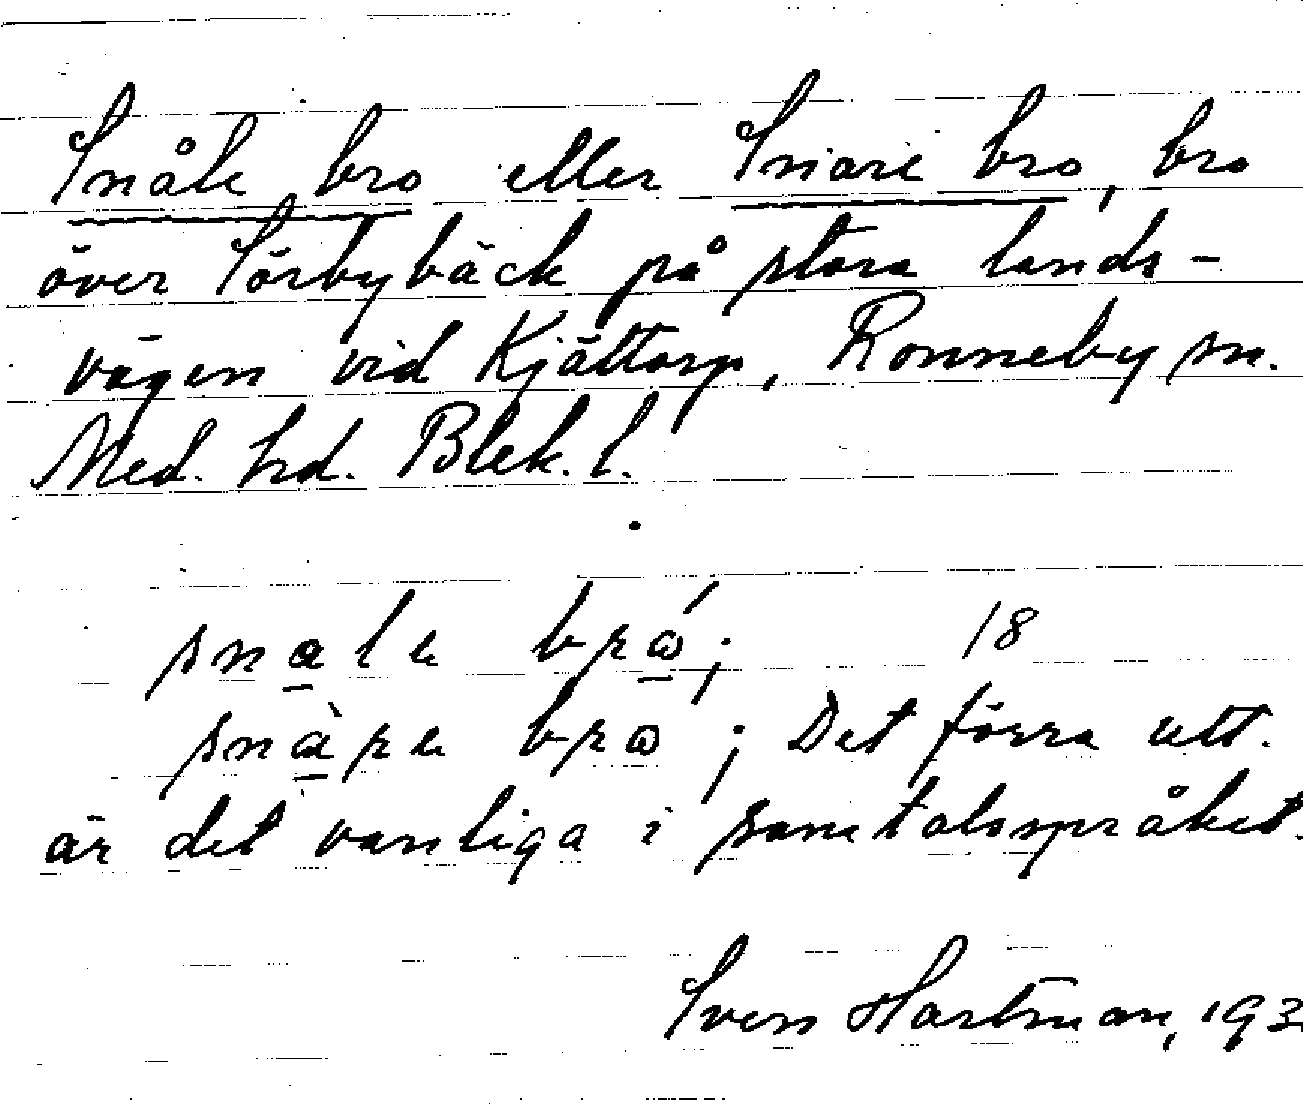 Snåle bro eller Snare bro, bro
över Sörbybäck på stora lands-
vägen vid Kjättorp, Ronneby sn.
Med. hd. Blek. l.
snalu bró; 18
snàru bro; Det förra utt.
är det vanliga i samtalsspråket.
Sven Hartman, 193